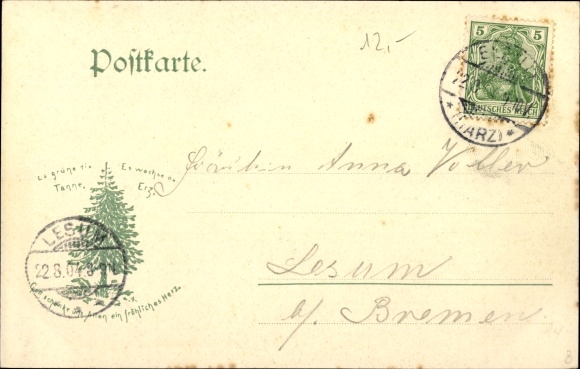 Postkarte.
12,-
5 5
DEUTSCHES REICH
(HARZ)
Es grüne die
Tanne,
Es wachse das
Erz,
Gott schenke uns Allen ein fröhliches Herz.
LESUM
22.8.04
Fräulein Anna Voller
Lesum
b/ Bremen